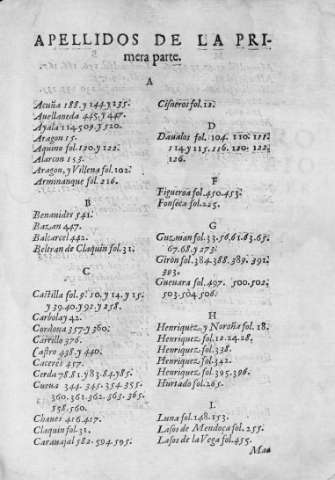 APELLIDOS DE LA PRI-
mera parte.
A
Acuña 188. y 244. y 235.
Auellaneda 445. y 447.
Ayala 114. 509. y 520.
Aragon 15.
Aquino fol. 120. y 122.
Alarcon 155.
Aragon, y Villena fol. 102.
Arminanque fol. 216.
B
Benauides 541.
Bazan 447.
Balcarcel 442.
Beltran de Claquin fol. 31.
C
Castilla fol. 9. 10. y 14. y 15.
y 39. 40. y 92. y 258.
Carbolay 42.
Cordoua 357. y 360.
Carrello 376.
Castro 438. y 440.
Caceres 457.
Cerda 78. 81. y 83. 84. 185.
Cueua 344. 345. 354. 355.
360. 361. 362. 363. 365.
558. 560.
Chaues 416. 417.
Claquin fol. 31.
Carauajal 582. 594. 595.
Cisneros fol. 12.
D
Daualos fol. 104. 110. 111.
114. y 115. 116. 120. 122.
126.
F
Figueroa fol. 450. 453.
Fonseca fol. 225.
G
Guzman fol. 33. 56. 61. 63. 65.
67. 68. y 273.
Giron fol. 384. 388. 389. 391.
393.
Gueuara fol. 497. 500. 502.
503. 504. 506.
H
Henriquez, y Noroña fol. 18.
Henriquez fol. 12. 24. 28.
Henriquez fol. 338.
Henriquez fol. 342.
Henriquez fol. 395. 396.
Hurtado fol. 265.
L
Luna fol. 148. 153.
Lasos de Mendoça fol. 255.
Lasos de la Vega fol. 455.
Man